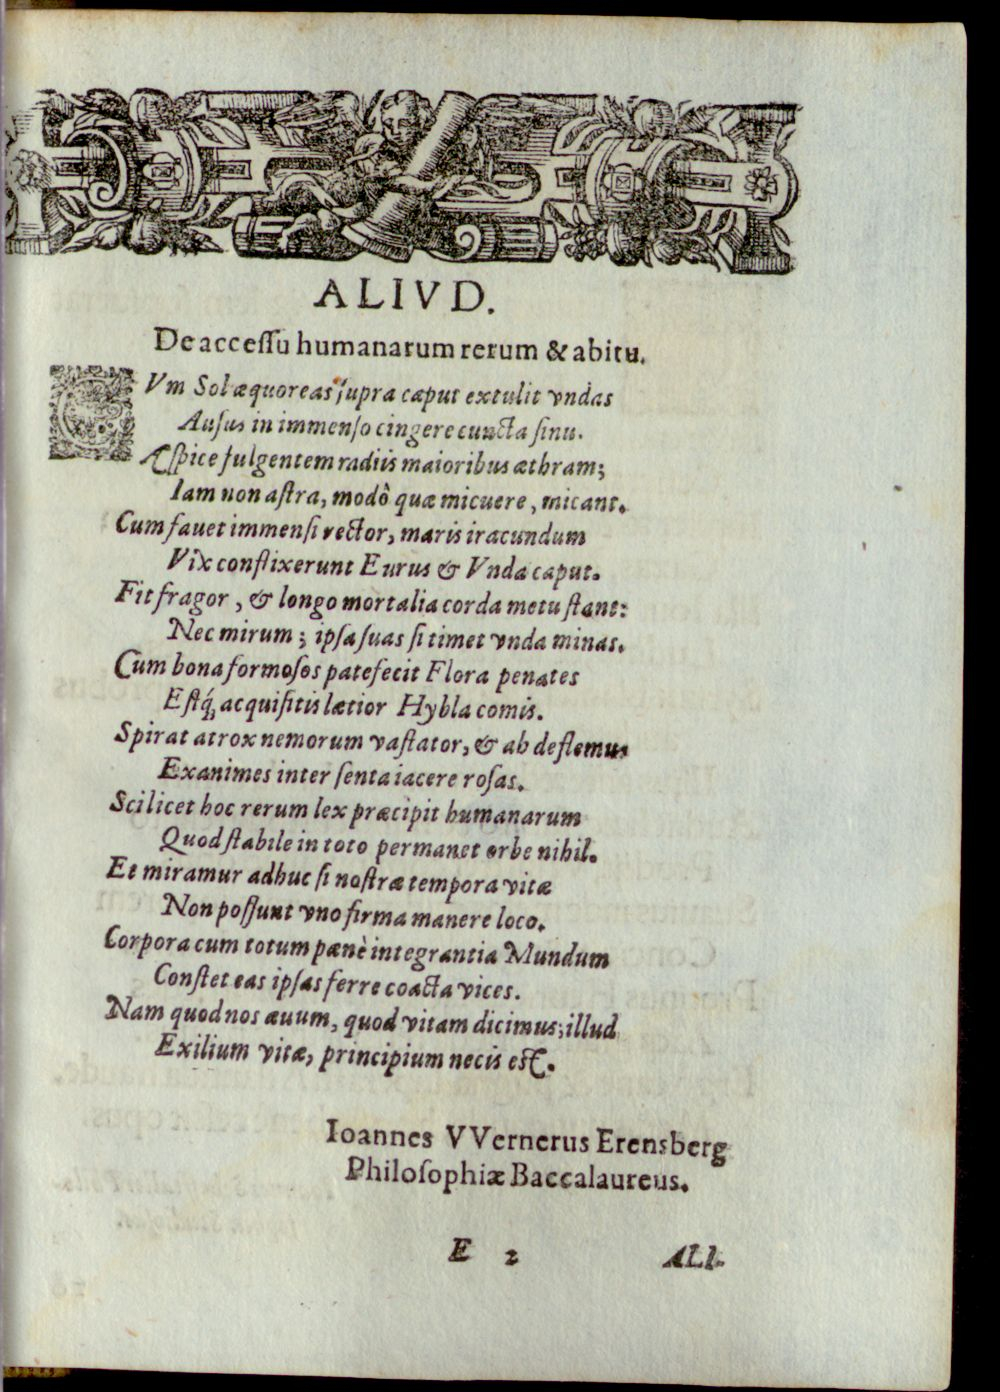 ALIVD.
De accessu humanarum rerum & abitu.
CVm Sol æquoreas supra caput extulit vndas
Ausus in immenso cingere cuncta sinu.
Æspice fulgentem radiis maioribus æthram;
Iam non astra, modô quæ micuere, micant.
Cum favet immensi rector, maris iracundum
Vix conflixerunt Eurus & Vnda caput.
Fit fragor, & longo mortalia corda metu stant:
Nec mirum; ipsa suas si timet vnda minas.
Cum bona formosos patefecit Flora penates
Estq́, acquisitis lætior Hybla comis.
Spirat atrox nemorum vastator, & ab deflemus
Exanimes inter senta iacere rosas.
Scilicet hoc rerum lex præcipit humanarum
Quod stabile in toto permanet orbe nihil.
Et miramur adhuc si nostræ tempora vitæ
Non possunt vno firma manere loco.
Corpora cum totum pænè integrantia Mundum
Constet eas ipsas ferre coacta vices.
Nam quod nos æuum, quod vitam dicimus; illud
Exilium vitæ, principium necis est.
Ioannes VVernerus Erensberg
Philosophiæ Baccalaureus.
E 2 ALI-